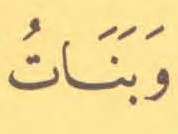 وَبَنَاتُ